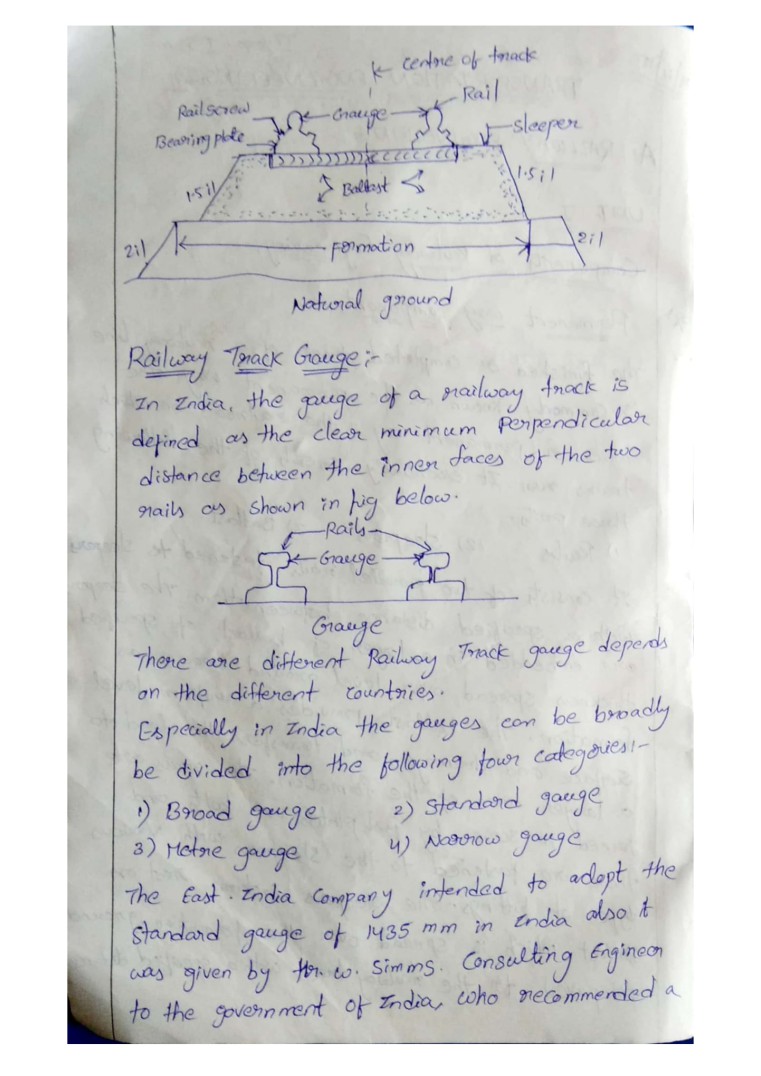 centre of track
Rail
Rail screw
Gauge
Sleeper
Bearing plate
1.5:1
Ballast
1.5:1
2:1
Formation
2:1
Natural ground
Railway Track Gauge:-
In India, the gauge of a railway track is
defined as the clear minimum Perpendicular
distance between the inner faces of the two
rails as shown in fig below.
Rails
Gauge
Gauge
There are different Railway Track gauge depends
on the different countries.
Especially in India the gauges can be broadly
be divided into the following four categories:-
1) Broad gauge 2) Standard gauge
3) Metre gauge 4) Narrow gauge
The East India Company intended to adopt the
Standard gauge of 1435 mm in India also it
was given by W. Simms. Consulting Engineer
to the government of India, who recommended a